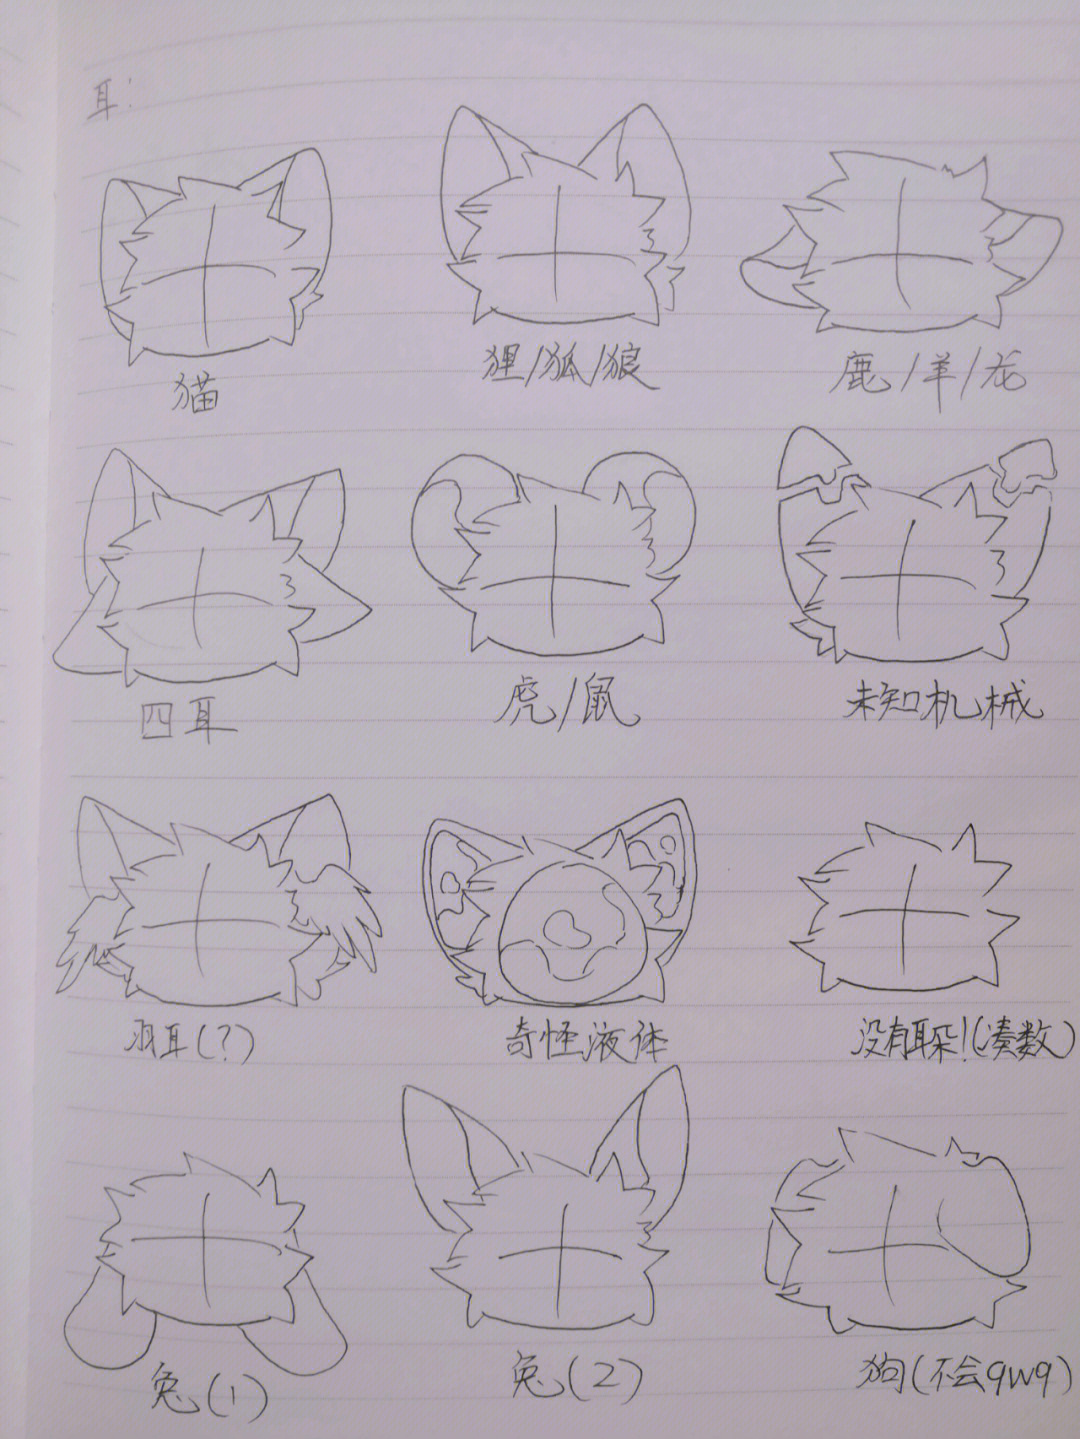 耳:
猫
狸/狐/狼
鹿/羊/龙
四耳
虎/鼠
未知机械
羽耳(?)
奇怪液体
没有耳朵!(凑数)
兔(1)
兔(2)
狗(不会qwq)